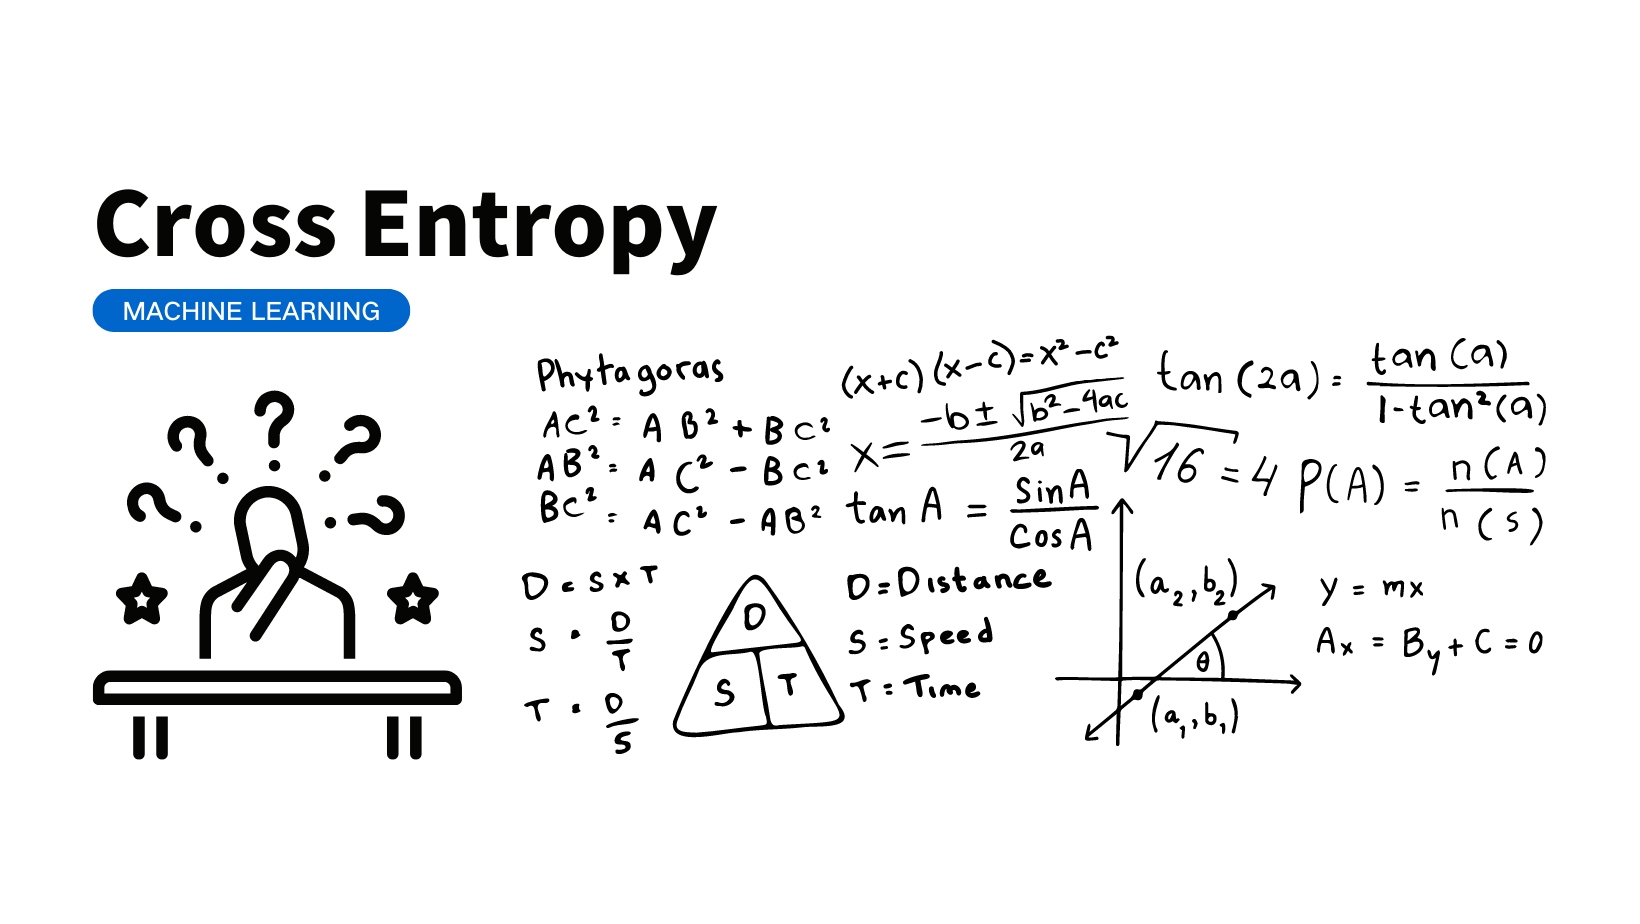 Cross Entropy
MACHINE LEARNING
Phytagoras
AC² = A B² + B C²
AB² = A C² - B C²
BC² = A C² - A B²
(x+c) (x-c) = x² - c²
x = -b ± √b² - 4ac / 2a
tan A = sin A / Cos A
tan (2a) = tan (a) / 1 - tan² (a)
√16 = 4
P(A) = n (A) / n (s)
D = S x T
S = D / T
T = D / S
D
S T
D = Distance
S = Speed
T = Time
(a₂, b₂)
θ
(a₁, b₁)
y = mx
Ax = By + C = 0
? ? ? ? ?